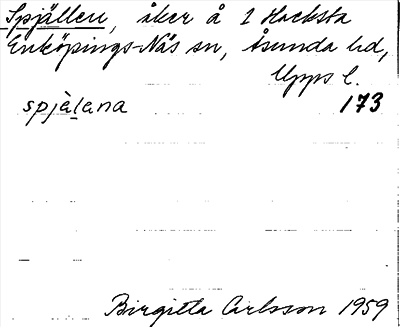 Spjällen, åker å 1 Hacksta
Enköpings-Näs sn, Åsunda hd,
Upps l.
spjälana 173
Birgitta Carlsson 1959